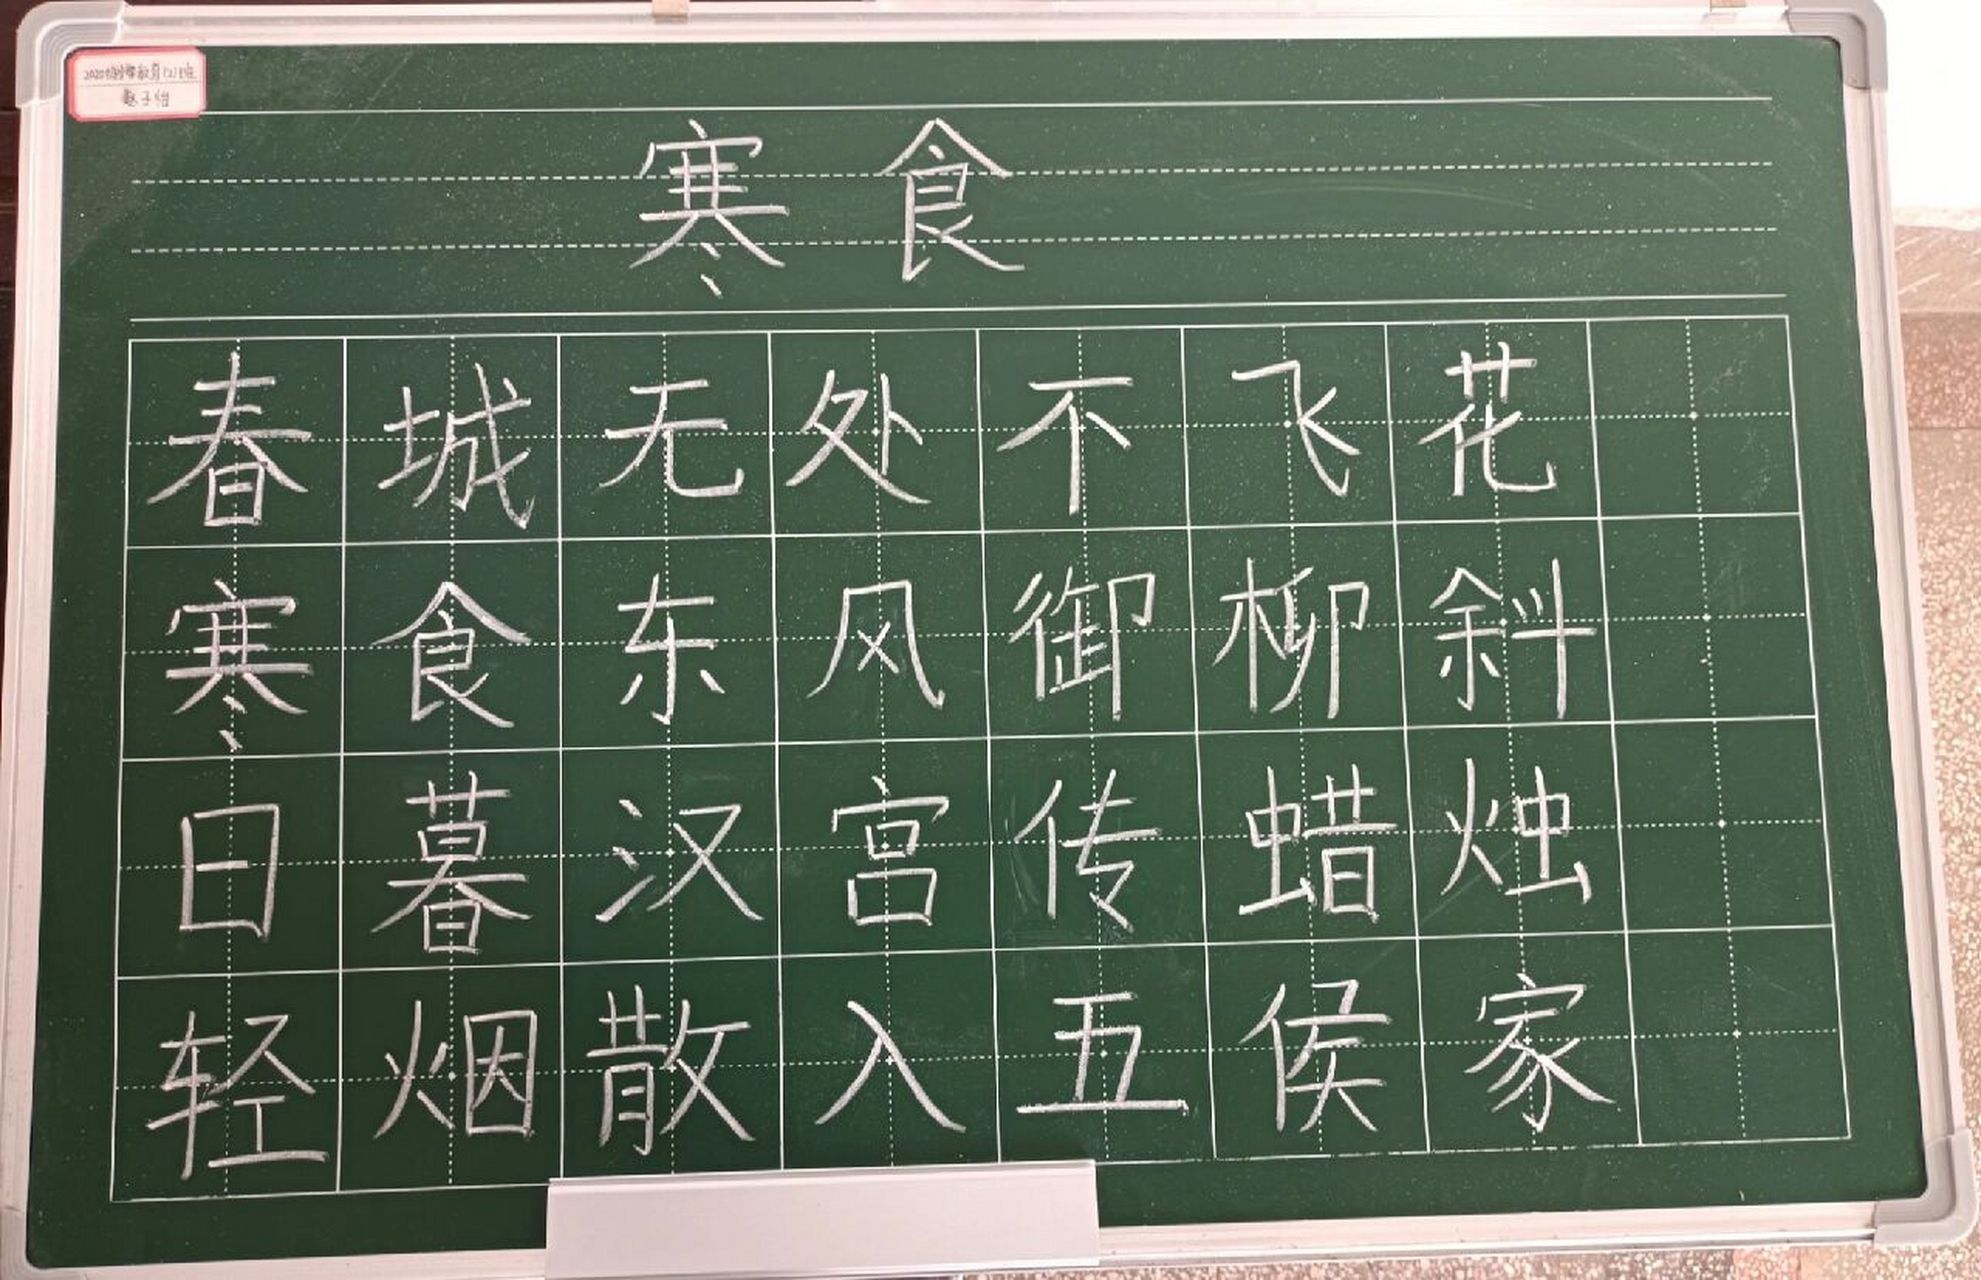 寒食
春城无处不飞花
寒食东风御柳斜
日暮汉宫传蜡烛
轻烟散入五侯家